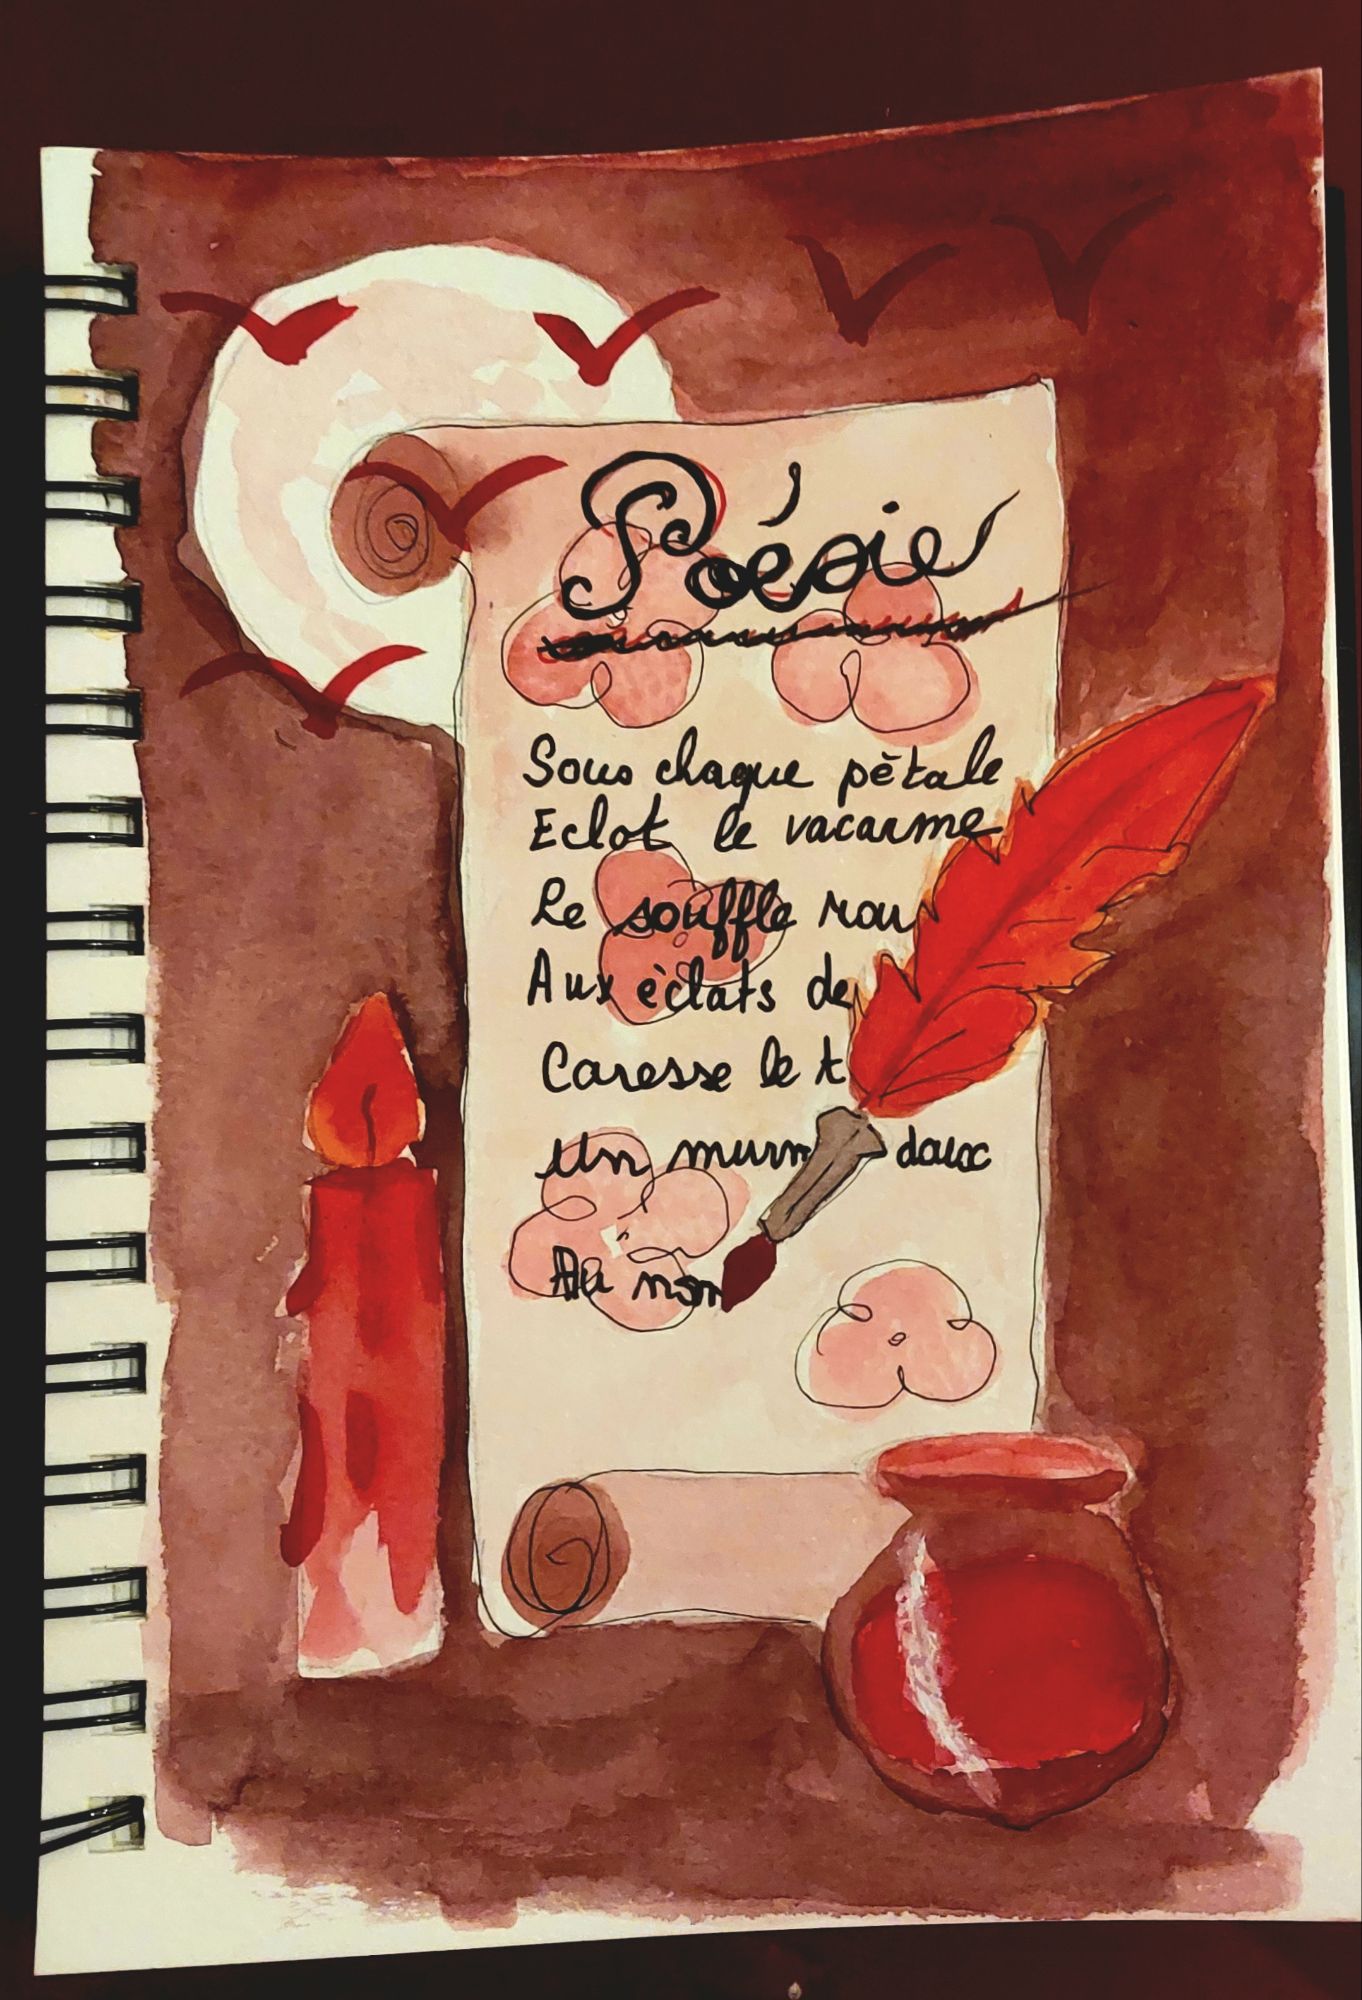 Poésie
Sous chaque pètale
Eclot le vacarme
Le souffle rou
Aux èclats de
Caresse le t
Un murm doux
Au nom